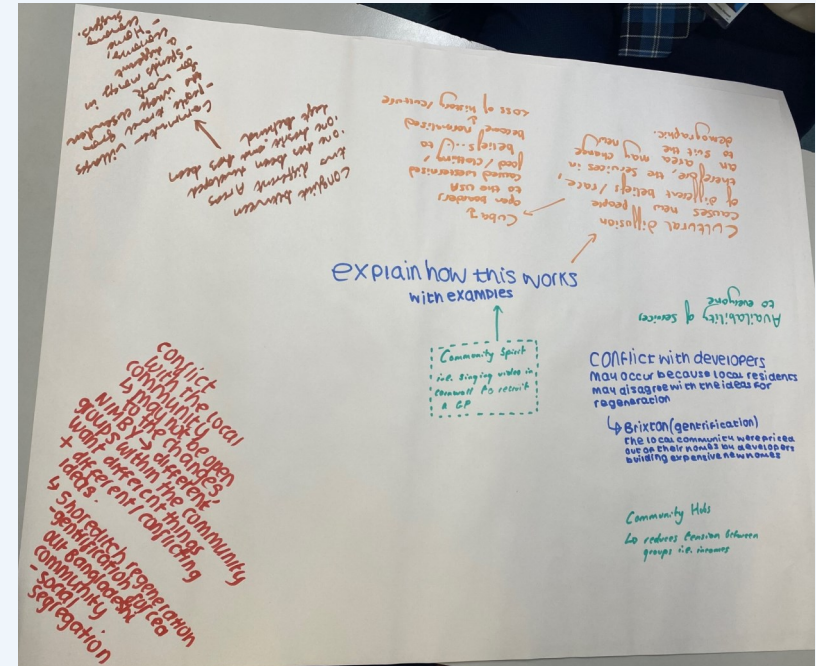 explain how this works
with examples
Community Spirit
i.e. singing video in
cornwall to recruit
a GP
Availability of services
to everyone
Conflict with developers
May occur because local residents
may disagree with the ideas for
regeneration
↳ Brixton (gentrification)
the local community were priced
out of their homes by developers
building expensive new homes
Community Hubs
↳ reduces tension between
groups i.e. incomes
Cultural diffusion
causes new people
of different beliefs / race,
therefore, the services in
an area may change
to suit the new
demographic.
Cuba?
open borders
to the USA
caused westernised
food / clothing /
beliefs ... to
become normalised
↓
Loss of history / culture
Conflict between
two different Areas
one has been developed
one hasn't and has been
left behind.
Commuter villages
- people work
spends money in
conflict
with the local
community
↳ may not
be open
to the changes,
NIMBY → different
groups within the community
want different things
+ different / conflicting
ideas.
↳ Shoreditch regeneration
- gentrification forced
out Bangladeshi
community
- social
segregation